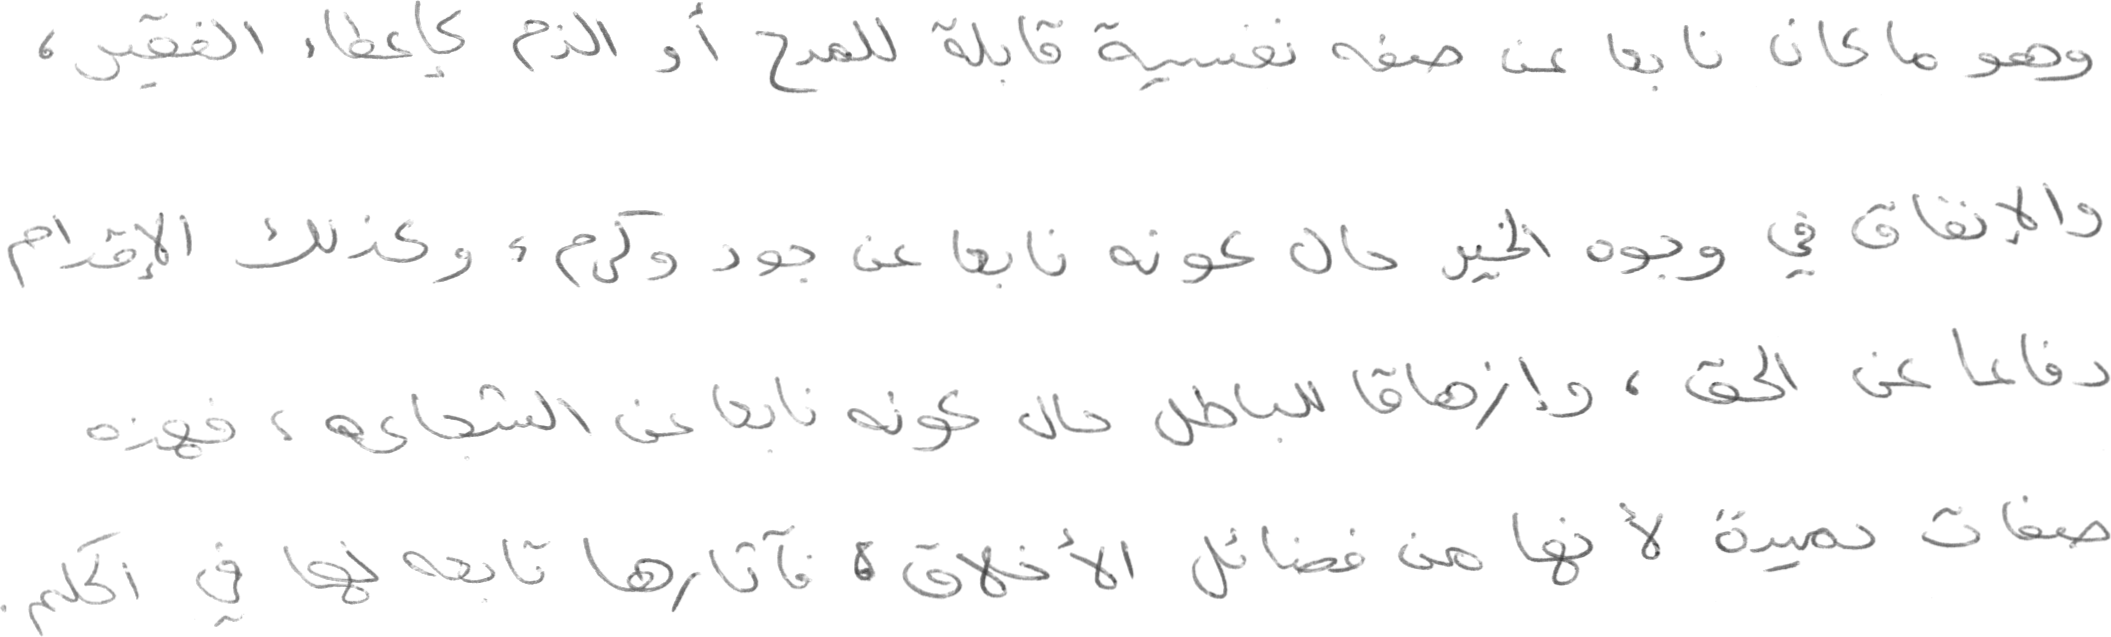 وهو ما كان نابعا عن صفه نفسية قابلة للمدح أو الذم كإعطاء الفقير ،
والإنفاق في وجوه الخير حال كونه نابعا عن جود وكرم ، وكذلك الإقدام
دفاعا عن الحق ، وإزهاقا للباطل حال كونه نابعا عن الشجاعه ، فهذه
صفات حميدة لأنها من فضائل الأخلاق ، فآثارها تابعه لها في الحكم .